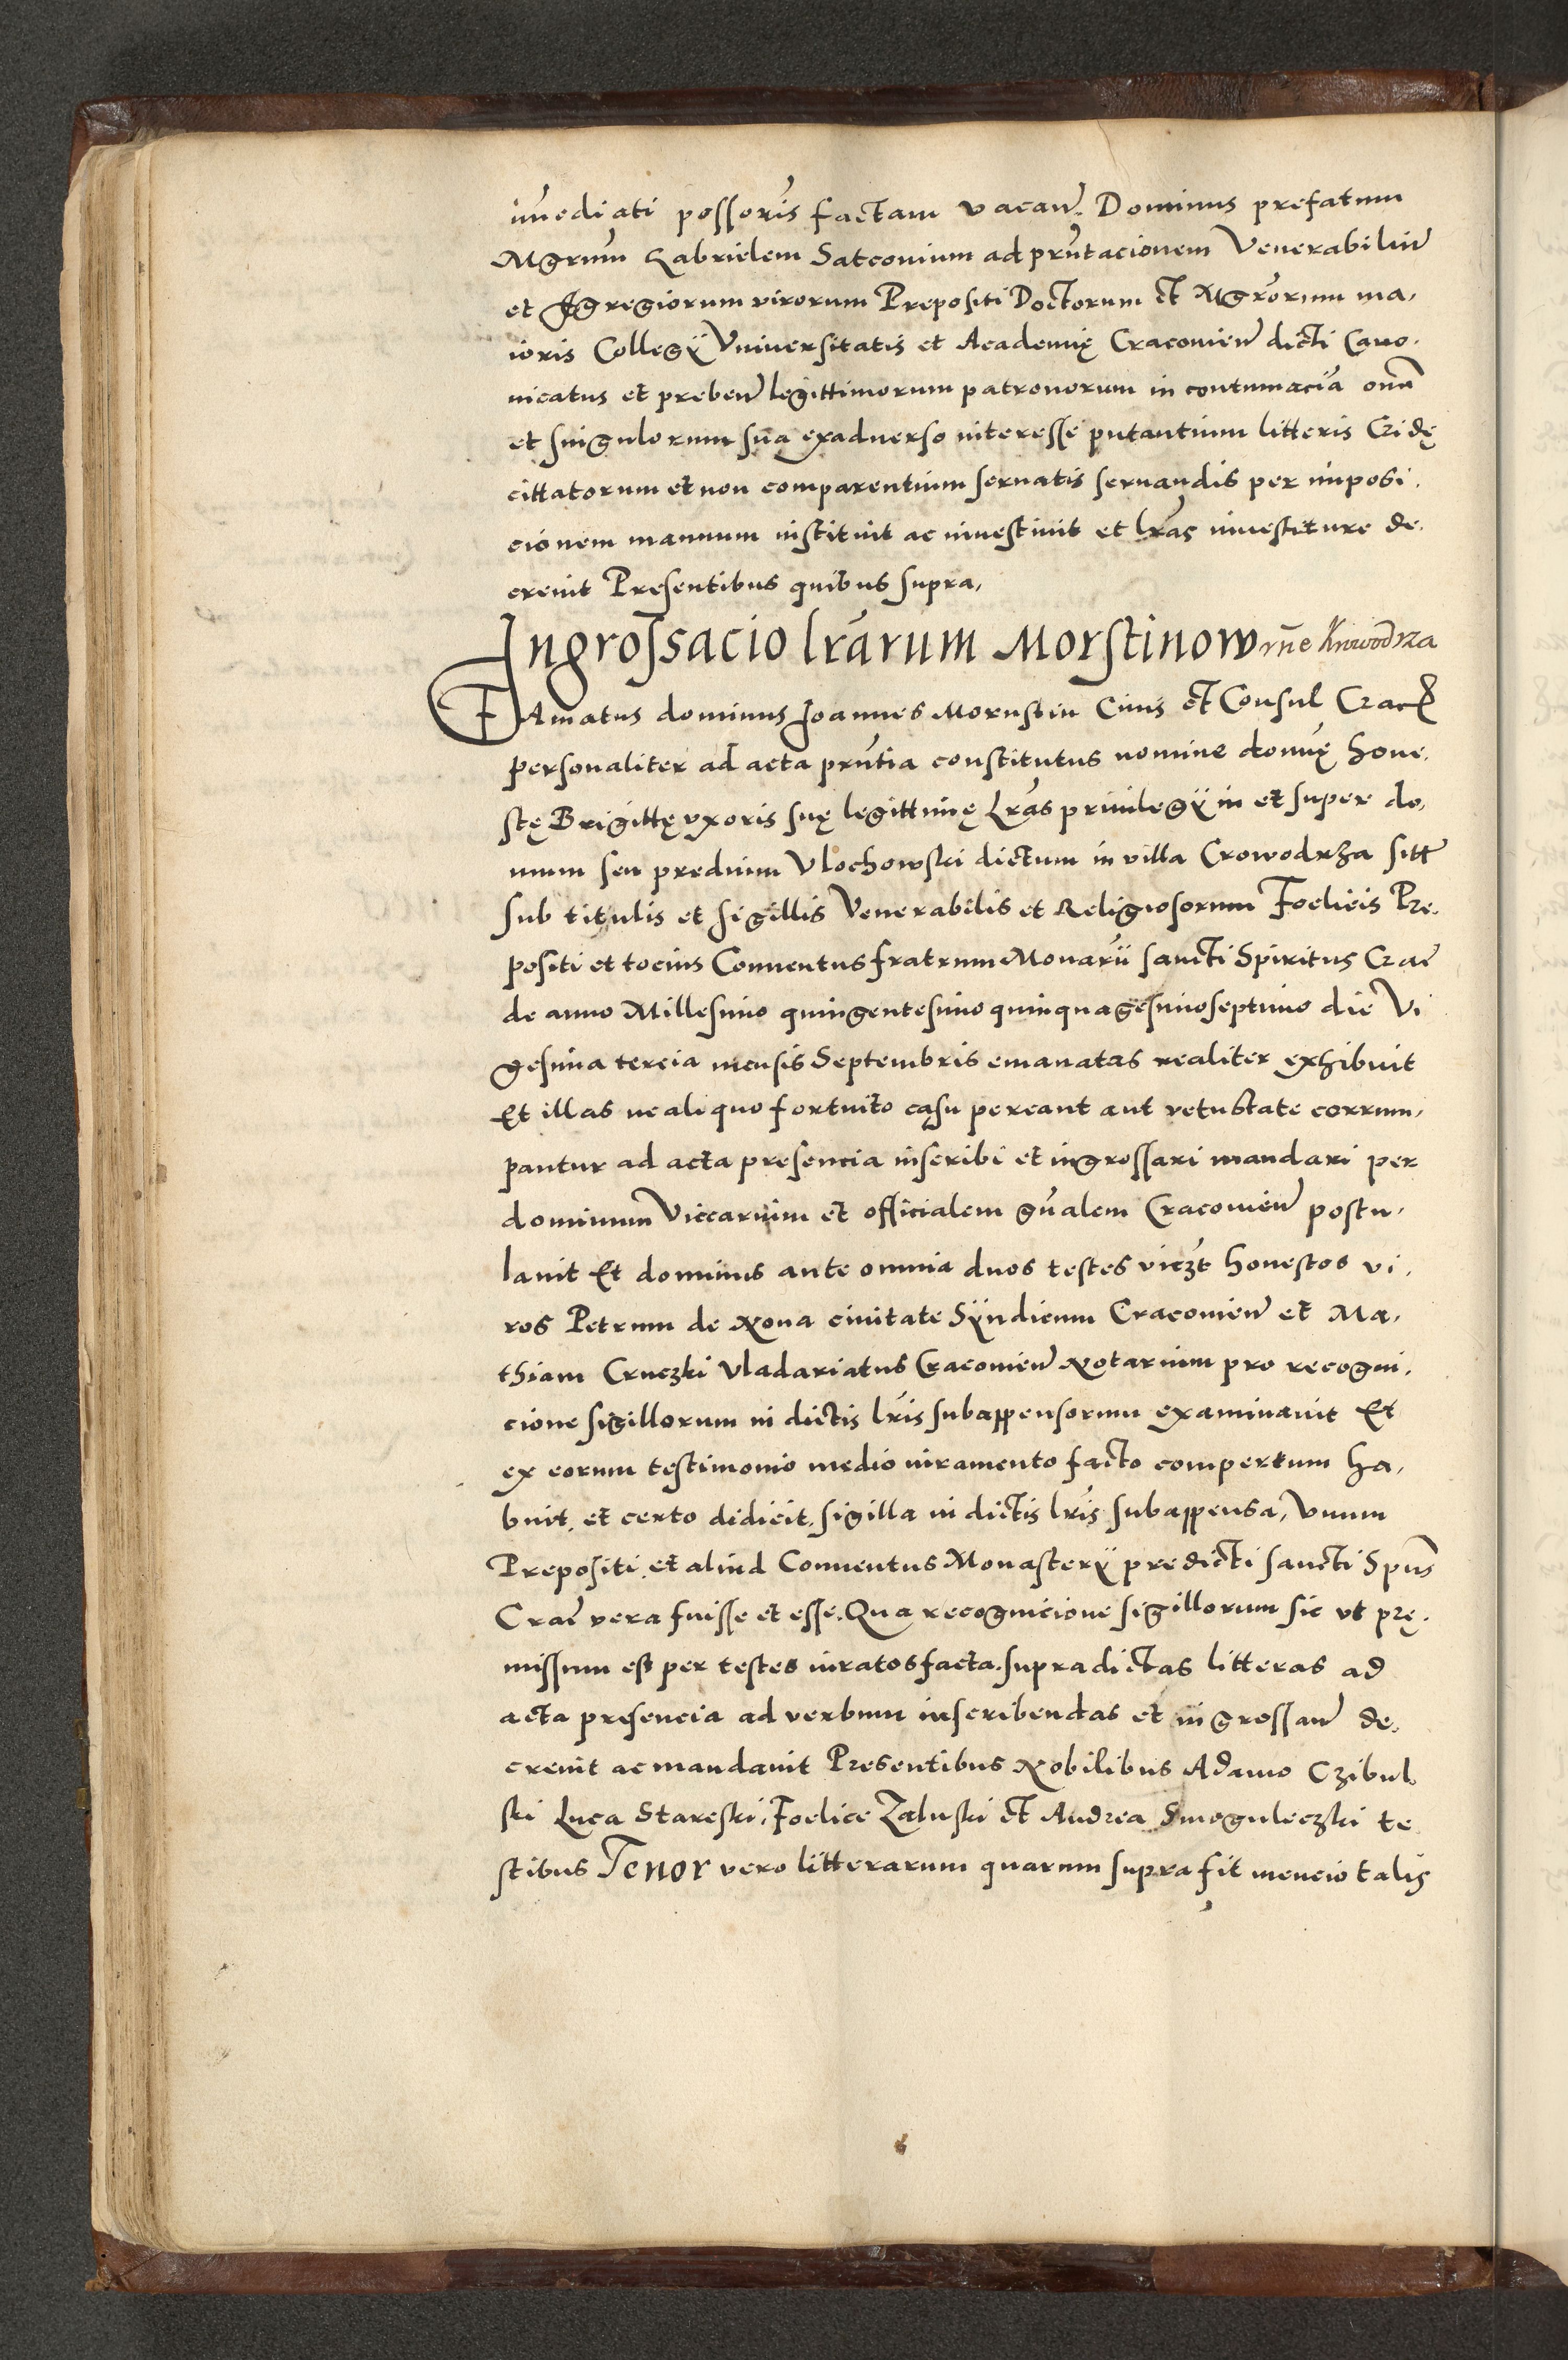 im̃ediati possoris factam vacan̄. Dominus prefatum
Mgrum Gabrielem Satconium ad prñtacionem Venerabiliũ
et Egregiorum virorum Prepositi Doctorum et Mgrorum ma,
ioris Collegÿ Vniuersitatis et Academię Cracouien̄ dicti Cano,
nicatus et preben̄ legittimorum patronorum in contumacia om̃
et singulorum sua exaduerso interesse putantium litteris Cridę
cittatorum et non comparentium seruatis seruandis per imposi,
cionem manuum instituit ac inuestiuit et lras inuestiture de,
creuit Presentibus quibus supra,
Ingrossacio lrarum Morstinow rñe Krowodrza
FAmatus dominus Joannes Mornstin Ciuis et Consul Crac
personaliter ad acta prñtia constitutus nomine domnę hone,
stę Brigittę vxoris suę legittimę Lras priuilegÿ in et super do,
mum seu predium Vlochowski dictum in villa Crowodrza sitt
sub titulis et sigillis Venerabilis et Religiosorum Foelicis Pre,
positi et tocius Conuentus fratrum Monarii sancti Spiritus Crac
de anno Millesimo quingentesimo quinquagesimoseptimo die Vi
gesima tercia mensis Septembris emanatas realiter exhibuit
Et illas ne aliquo fortuito casu pereant aut vetustate corrum,
pantur ad acta presencia inscribi et ingrossari mandari per
dominum Viccarium et officialem gñalem Cracouien̄ postu,
lauit Et dominus ante omnia duos testes viczt honestos vi,
ros Petrum de Noua ciuitate Sÿndicum Cracouien̄ et Ma,
thiam Cruczki Vladariatus Cracouien̄ Notarium pro recogni,
cione sigillorum in dictis lris subappensorum examinauit Et
ex eorum testimonio medio iuramento facto compertum ha,
buit, et certo didicit, sigilla in dictis lris subappensa, Vnum
Prepositi, et aliud Conuentus Monasterÿ predicti sancti Spũs
Crac vera fuisse et esse. Qua recognicione sigillorum sic vt prę,
missum est per testes iuratos facta. supradictas litteras ad
acta presencia ad verbum inscribendas et ingrossan̄ de,
creuit ac mandauit Presentibus Nobilibus Adamo Czibul,
ski Luca Stareski, Foelice Zaluski et Andrea Smoguleczki te
stibus Tenor vero litterarum quarum supra fit mencio talis